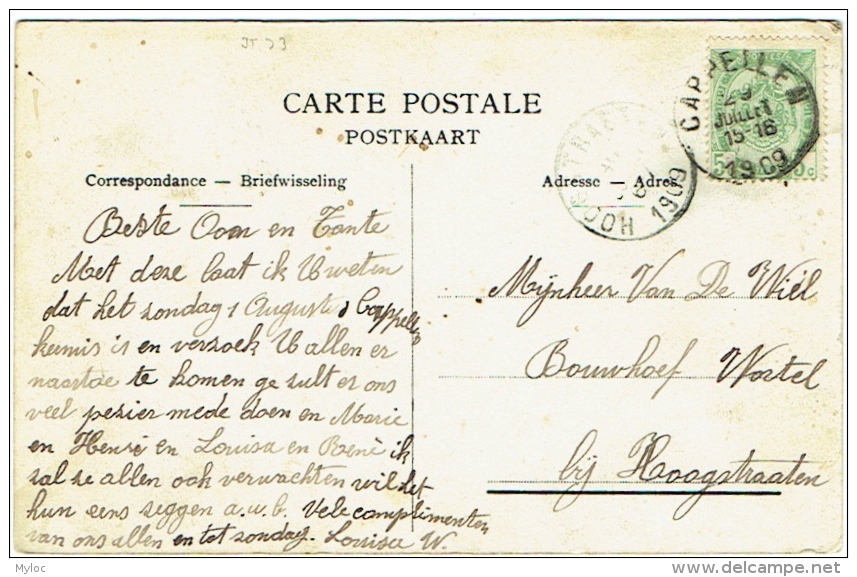 JT 73
CARTE POSTALE
POSTKAART
CAPPELLEN
29
JUILLET
15-16
1909
5 5c
HOOGSTRAETEN
1909
Correspondance — Briefwisseling
Adresse — Adres
Beste Oom en Tante
Met deze laat ik U weten
dat het zondag 1 Augustus Cappellen
kermis is en verzoek U allen er
naartoe te komen ge zult er ons
veel pezier mede doen en Marie
en Henri en Louisa en René ik
zal ze allen ook verwachten wil het
hun eens zeggen a.u.b. Vele complimenten
van ons allen en tot zondag. Louisa W.
Mijnheer Van De Wiel
Bouwhoef Wortel
bij Hoogstraaten
© Myloc
http://myloc.delcampe.net